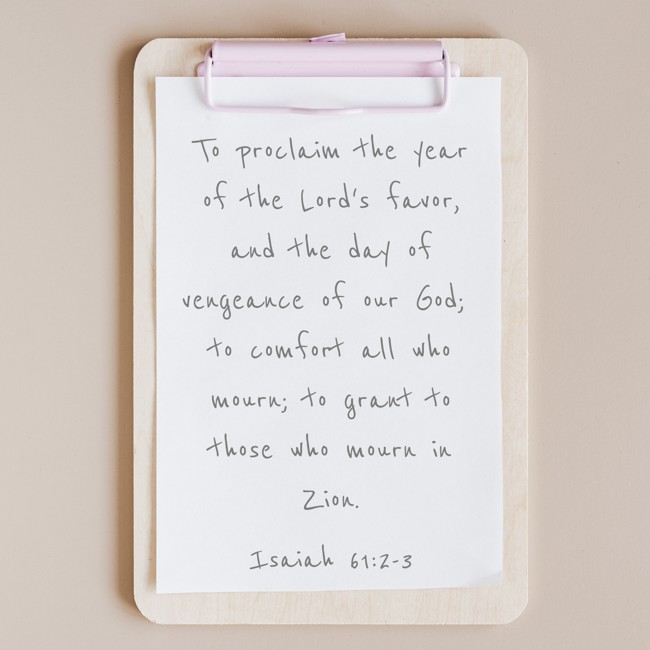 To proclaim the year
of the Lord's favor,
and the day of
vengeance of our God;
to comfort all who
mourn; to grant to
those who mourn in
Zion.
Isaiah 61:2-3